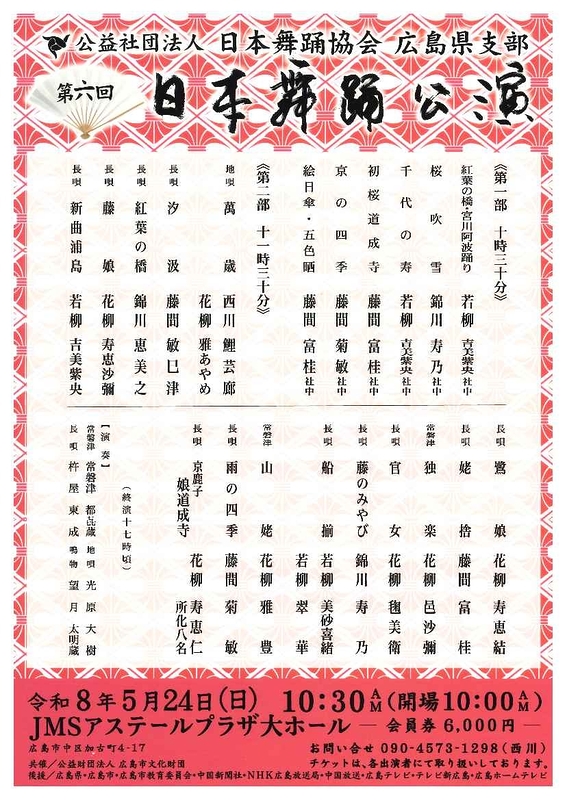 公益社団法人 日本舞踊協会 広島県支部
第六回
日本舞踊公演
《第一部 十時三十分》
紅葉の橋・宮川阿波踊り 若柳 吉美紫央社中
桜吹雪 錦川 寿乃社中
千代の寿 若柳 吉美紫央社中
初桜道成寺 藤間 富桂社中
京の四季 藤間 菊敏社中
絵日傘・五色晒 藤間 富桂社中
《第二部 十一時三十分》
地唄 萬歳 西川 鯉芸廊
花柳 雅あやめ
長唄 汐汲 藤間 敏巳津
長唄 紅葉の橋 錦川 恵美之
長唄 藤娘 花柳 寿恵沙彌
長唄 新曲浦島 若柳 吉美紫央
長唄 鷺娘 花柳 寿恵結
長唄 姥捨 藤間 富桂
常磐津 独楽 花柳 邑沙彌
長唄 官女 花柳 美衛
長唄 藤のみやび 錦川 寿乃
長唄 船揃 若柳 美砂喜緒
若柳 翠華
常磐津 山姥 花柳 雅豊
長唄 雨の四季 藤間 菊敏
長唄 京鹿子娘道成寺 花柳 寿恵仁
所化八名
(終演十七時頃)
【演奏】
常磐津 常磐津 都㐂蔵 地唄 光原大樹
長唄 杵屋東成 鳴物 望月太明蔵
令和8年5月24日(日) 10:30AM(開場10:00AM)
JMSアステールプラザ大ホール ― 会員券 6,000円 ―
広島市中区加古町4-17
お問い合せ 090-4573-1298(西川)
チケットは、各出演者にて取り扱いしております。
共催/公益財団法人 広島市文化財団
後援/広島県・広島市・広島市教育委員会・中国新聞社・NHK広島放送局・中国放送・広島テレビ・テレビ新広島・広島ホームテレビ